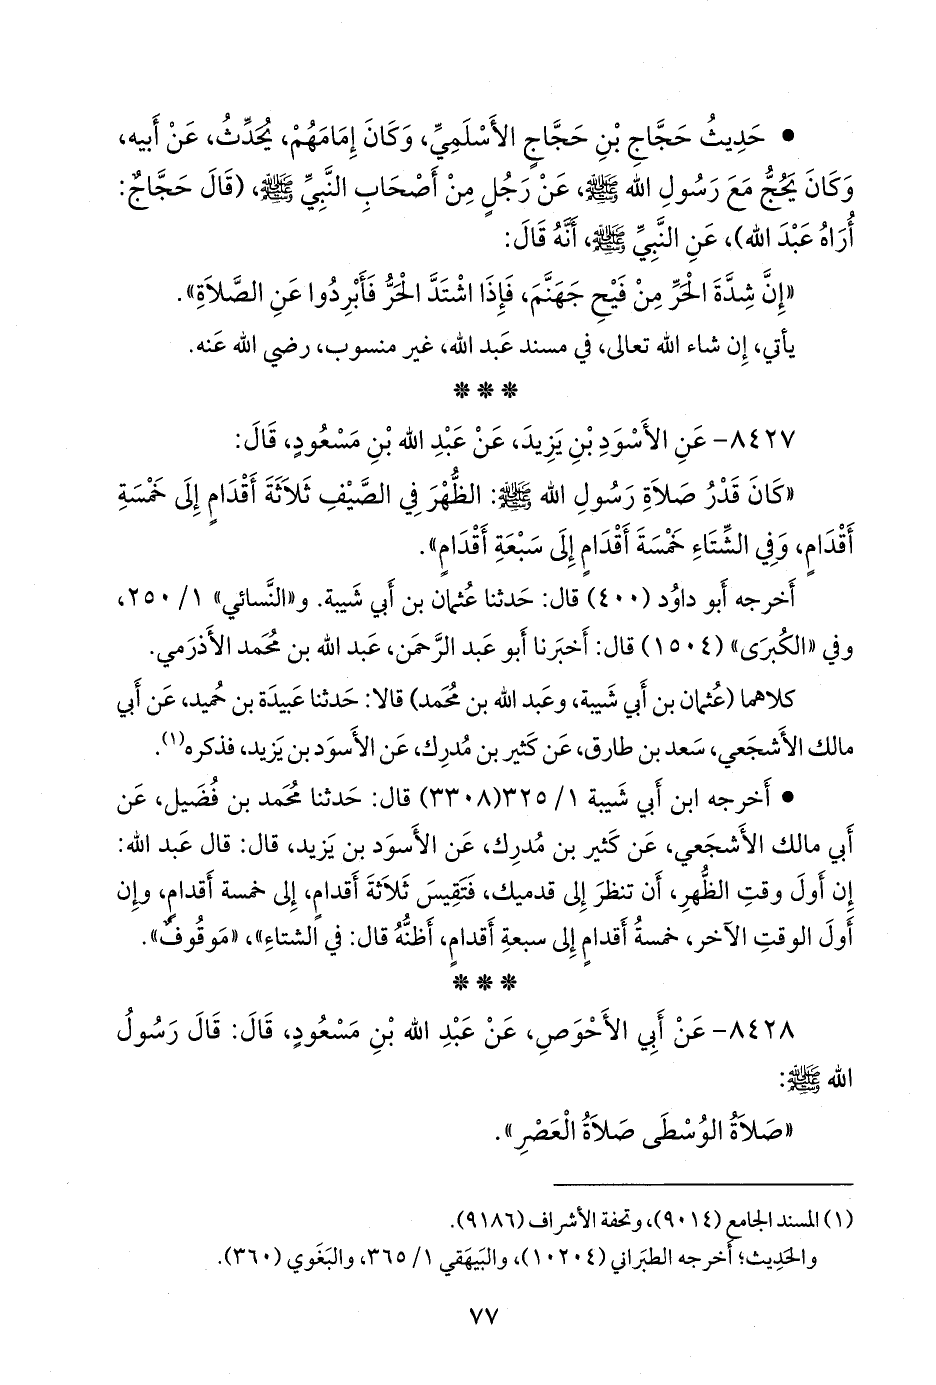 • حَدِيثُ حَجَّاجِ بْنِ حَجَّاجٍ الأَسْلَمِيِّ، وَكَانَ إِمَامَهُمْ، يُحَدِّثُ، عَنْ أَبيه،
وَكَانَ يَحُجُّ مَعَ رَسُولِ الله ﷺ، عَنْ رَجُلٍ مِنْ أَصْحَابِ النَّبِيِّ ﷺ، (قَالَ حَجَّاجٌ:
أُرَاهُ عَبْدَ الله)، عَنِ النَّبِيِّ ﷺ، أَنَّهُ قَالَ:
«إِنَّ شِدَّةَ الْحَرِّ مِنْ فَيْحِ جَهَنَّمَ، فَإِذَا اشْتَدَّ الْحَرُّ فَأَبْرِدُوا عَنِ الصَّلاَةِ».
يأتي، إِن شاء الله تعالى، في مسند عَبد الله، غير منسوب، رضي الله عَنه.
* * *
٨٤٢٧- عَنِ الأَسْوَدِ بْنِ يَزِيدَ، عَنْ عَبْدِ الله بْنِ مَسْعُودٍ، قَالَ:
«كَانَ قَدْرُ صَلاَةِ رَسُولِ الله ﷺ: الظُّهْرَ فِي الصَّيْفِ ثَلاَثَةَ أَقْدَامٍ إِلَى خَمْسَةِ
أَقْدَامٍ، وَفِي الشِّتَاءِ خَمْسَةَ أَقْدَامٍ إِلَى سَبْعَةِ أَقْدَامٍ».
أَخرجه أَبو داوُد (٤٠٠) قال: حَدثنا عُثمان بن أَبي شَيبة. و«النَّسائي» ١/ ٢٥٠،
وفي «الكُبرَى» (١٥٠٤) قال: أَخبَرنا أَبو عَبد الرَّحمَن، عَبد الله بن مُحَمد الأَذرَمي.
كلاهما (عُثمان بن أَبي شَيبة، وعَبد الله بن مُحَمد) قالا: حَدثنا عَبيدَة بن حُميد، عَن أَبي
مالك الأَشجَعي، سَعد بن طارق، عَن كَثير بن مُدرِك، عَن الأَسوَد بن يَزيد، فذكره(١).
• أَخرجه ابن أَبي شَيبة ١/ ٣٢٥(٣٣٠٨) قال: حَدثنا مُحَمد بن فُضَيل، عَن
أَبي مالك الأَشجَعي، عَن كَثير بن مُدرِك، عَن الأَسوَد بن يَزيد، قال: قال عَبد الله:
إِن أَولَ وقتِ الظُّهرِ، أَن تنظرَ إِلى قدميك، فَتَقِيسَ ثَلاَثَةَ أَقدامٍ، إِلى خمسة أَقدامٍ، وإِن
أَولَ الوقتِ الآخرِ، خمسةُ أَقدامٍ إِلى سبعةِ أَقدامٍ، أَظنُّهُ قال: في الشتاءِ»، «مَوقُوفٌ».
* * *
٨٤٢٨- عَنْ أَبِي الأَحْوَصِ، عَنْ عَبْدِ الله بْنِ مَسْعُودٍ، قَالَ: قَالَ رَسُولُ
الله ﷺ:
«صَلاَةُ الوُسْطَى صَلاَةُ الْعَصْرِ».
(١) المسند الجامع (٩٠١٤)، وتحفة الأشراف (٩١٨٦).
والحَدِيث؛ أَخرجه الطبَراني (١٠٢٠٤)، والبَيهَقي ١/ ٣٦٥، والبَغَوي (٣٦٠).
٧٧